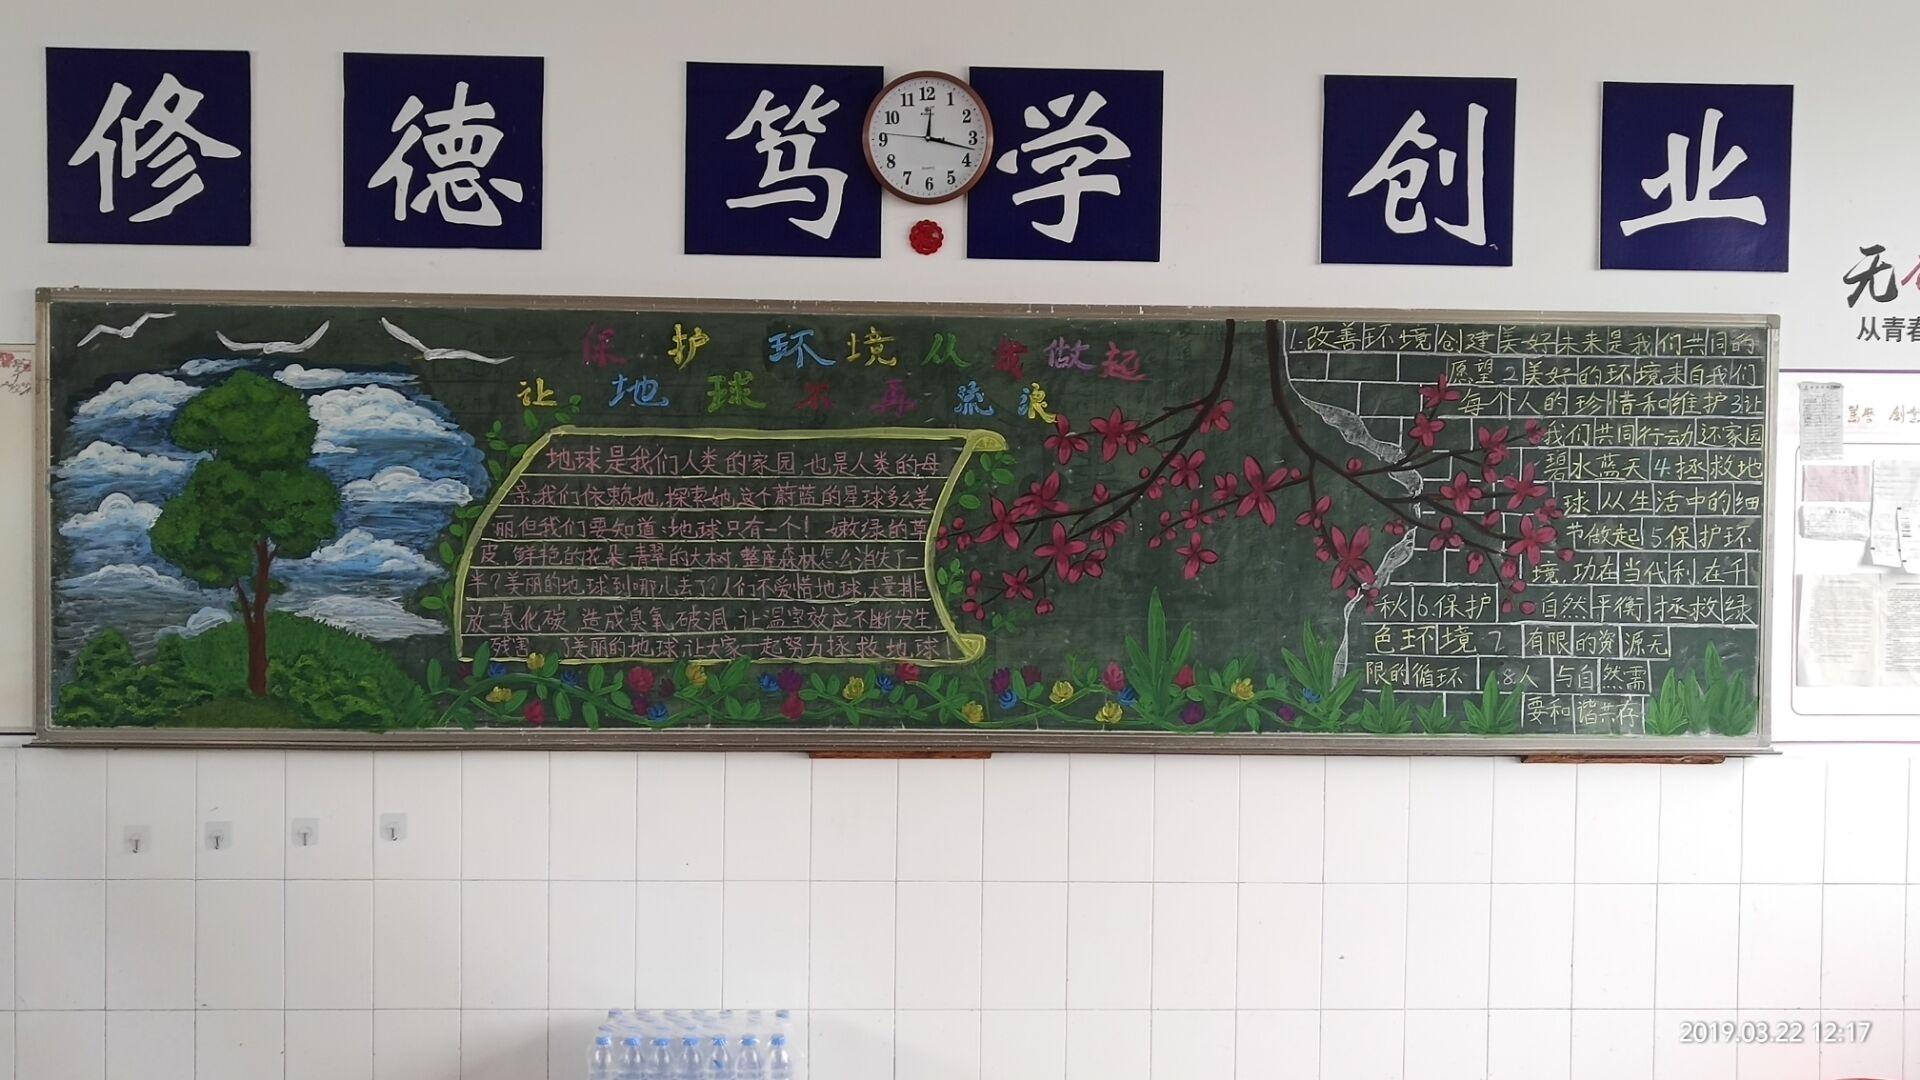 修 德 笃 学 创 业
12 1 2 3 4 5 6 7 8 9 10 11
无
从青春
保护环境从我做起
让地球不再流浪
地球是我们人类的家园,也是人类的母
亲,我们依赖她,探索她,这个蔚蓝的星球多么美
丽但我们要知道:地球只有一个!嫩绿的草
皮,鲜艳的花朵,青翠的大树,整座森林怎么消失了一
半?美丽的地球到哪儿去了?人们不爱惜地球,大量排
放二氧化碳,造成臭氧破洞,让温室效应不断发生
残害 了美丽的地球,让大家一起努力拯救地球
1.改善环境创建美好未来是我们共同的
愿望2美好的环境来自我们
每个人的珍惜和维护3让
我们共同行动还家园
碧水蓝天4拯救地
球从生活中的细
节做起5保护环
境,功在当代利在千
秋6保护自然平衡拯救绿
色环境7有限的资源无
限的循环8人与自然需
要和谐共存
2019.03.22 12:17